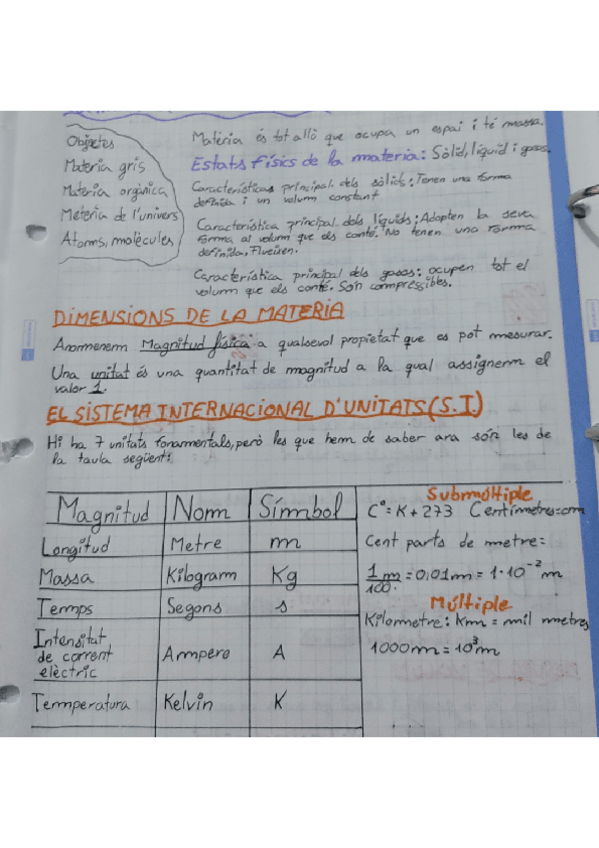 Objectes
Matèria gris
Matèria orgànica
Matèria de l'univers
Atoms, molècules
Matèria és tot allò que ocupa un espai i té massa.
Estats físics de la materia: Sòlid, líquid i gasos.
Características principal dels sòlids: Tenen una forma
definida i un volum constant
Característica principal dels líquids: Adopten la seva
forma al volum que els conté. No tenen una forma
definida, Flueixen.
Característica principal dels gasos: ocupen tot el
volum que els conté. Són compressibles.
DIMENSIONS DE LA MATERIA
Anomenem Magnitud física a qualsevol propietat que es pot mesurar.
Una unitat és una quantitat de magnitud a la qual assignem el
valor 1.
EL SISTEMA INTERNACIONAL D'UNITATS (S.I.)
Hi ha 7 unitats fonamentals, però les que hem de saber ara són les de
la taula següent:
Magnitud Nom Símbol
Longitud Metre m
Massa Kilogram Kg
Temps Segons s
Intensitat
de corrent
elèctric Ampere A
Temperatura Kelvin K
Submúltiple
C° = K + 273 Centímetres=cm
Cent parts de metre:
1 m/100 = 0,01m = 1·10⁻² m
Múltiple
Kilometre: Km = mil metres
1000m = 10³m